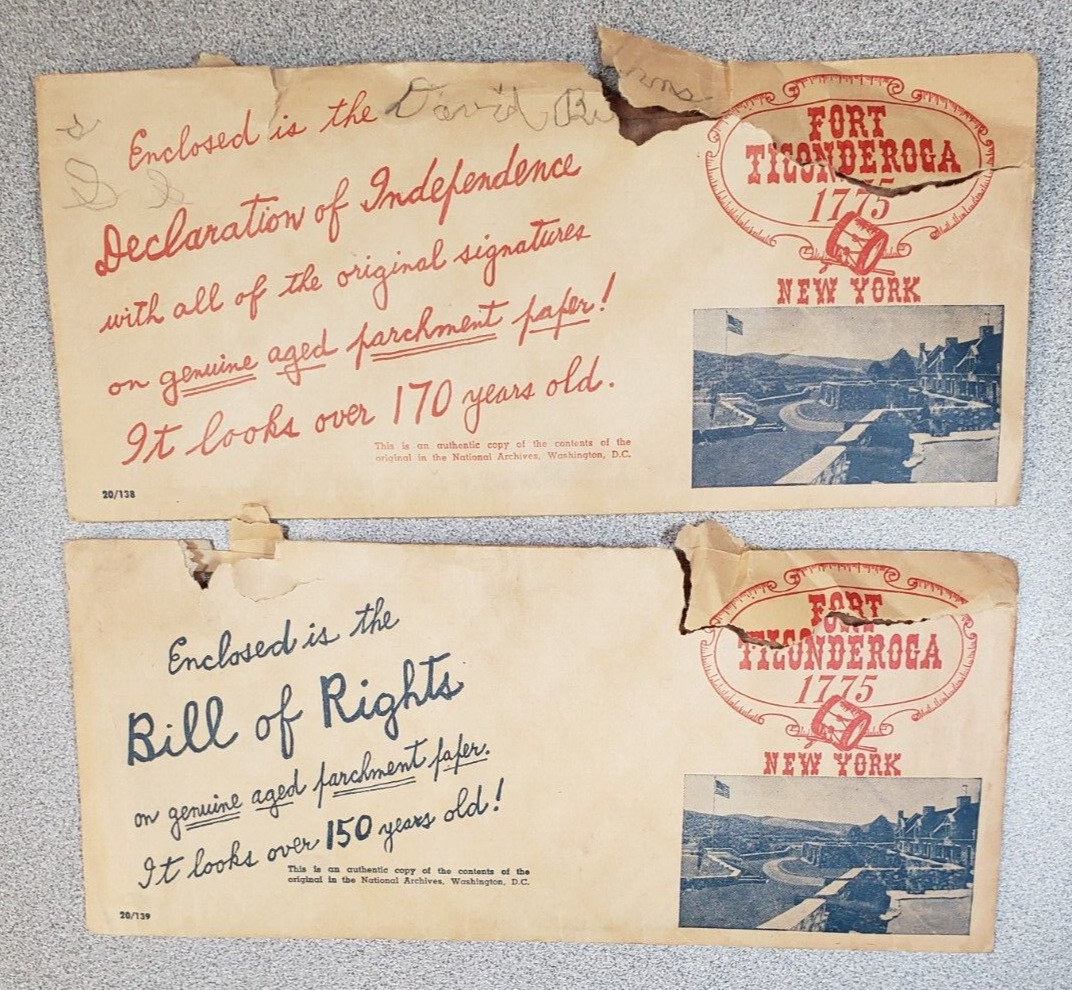 Enclosed is the
David
Declaration of Independence
with all of the original signatures
on genuine aged parchment paper!
It looks over 170 years old.
This is an authentic copy of the contents of the
original in the National Archives, Washington, D.C.
20/138
FORT
TICONDEROGA
1775
NEW YORK
Enclosed is the
Bill of Rights
on genuine aged parchment paper.
It looks over 150 years old!
This is an authentic copy of the contents of the
original in the National Archives, Washington, D.C.
20/139
FORT
TICONDEROGA
1775
NEW YORK